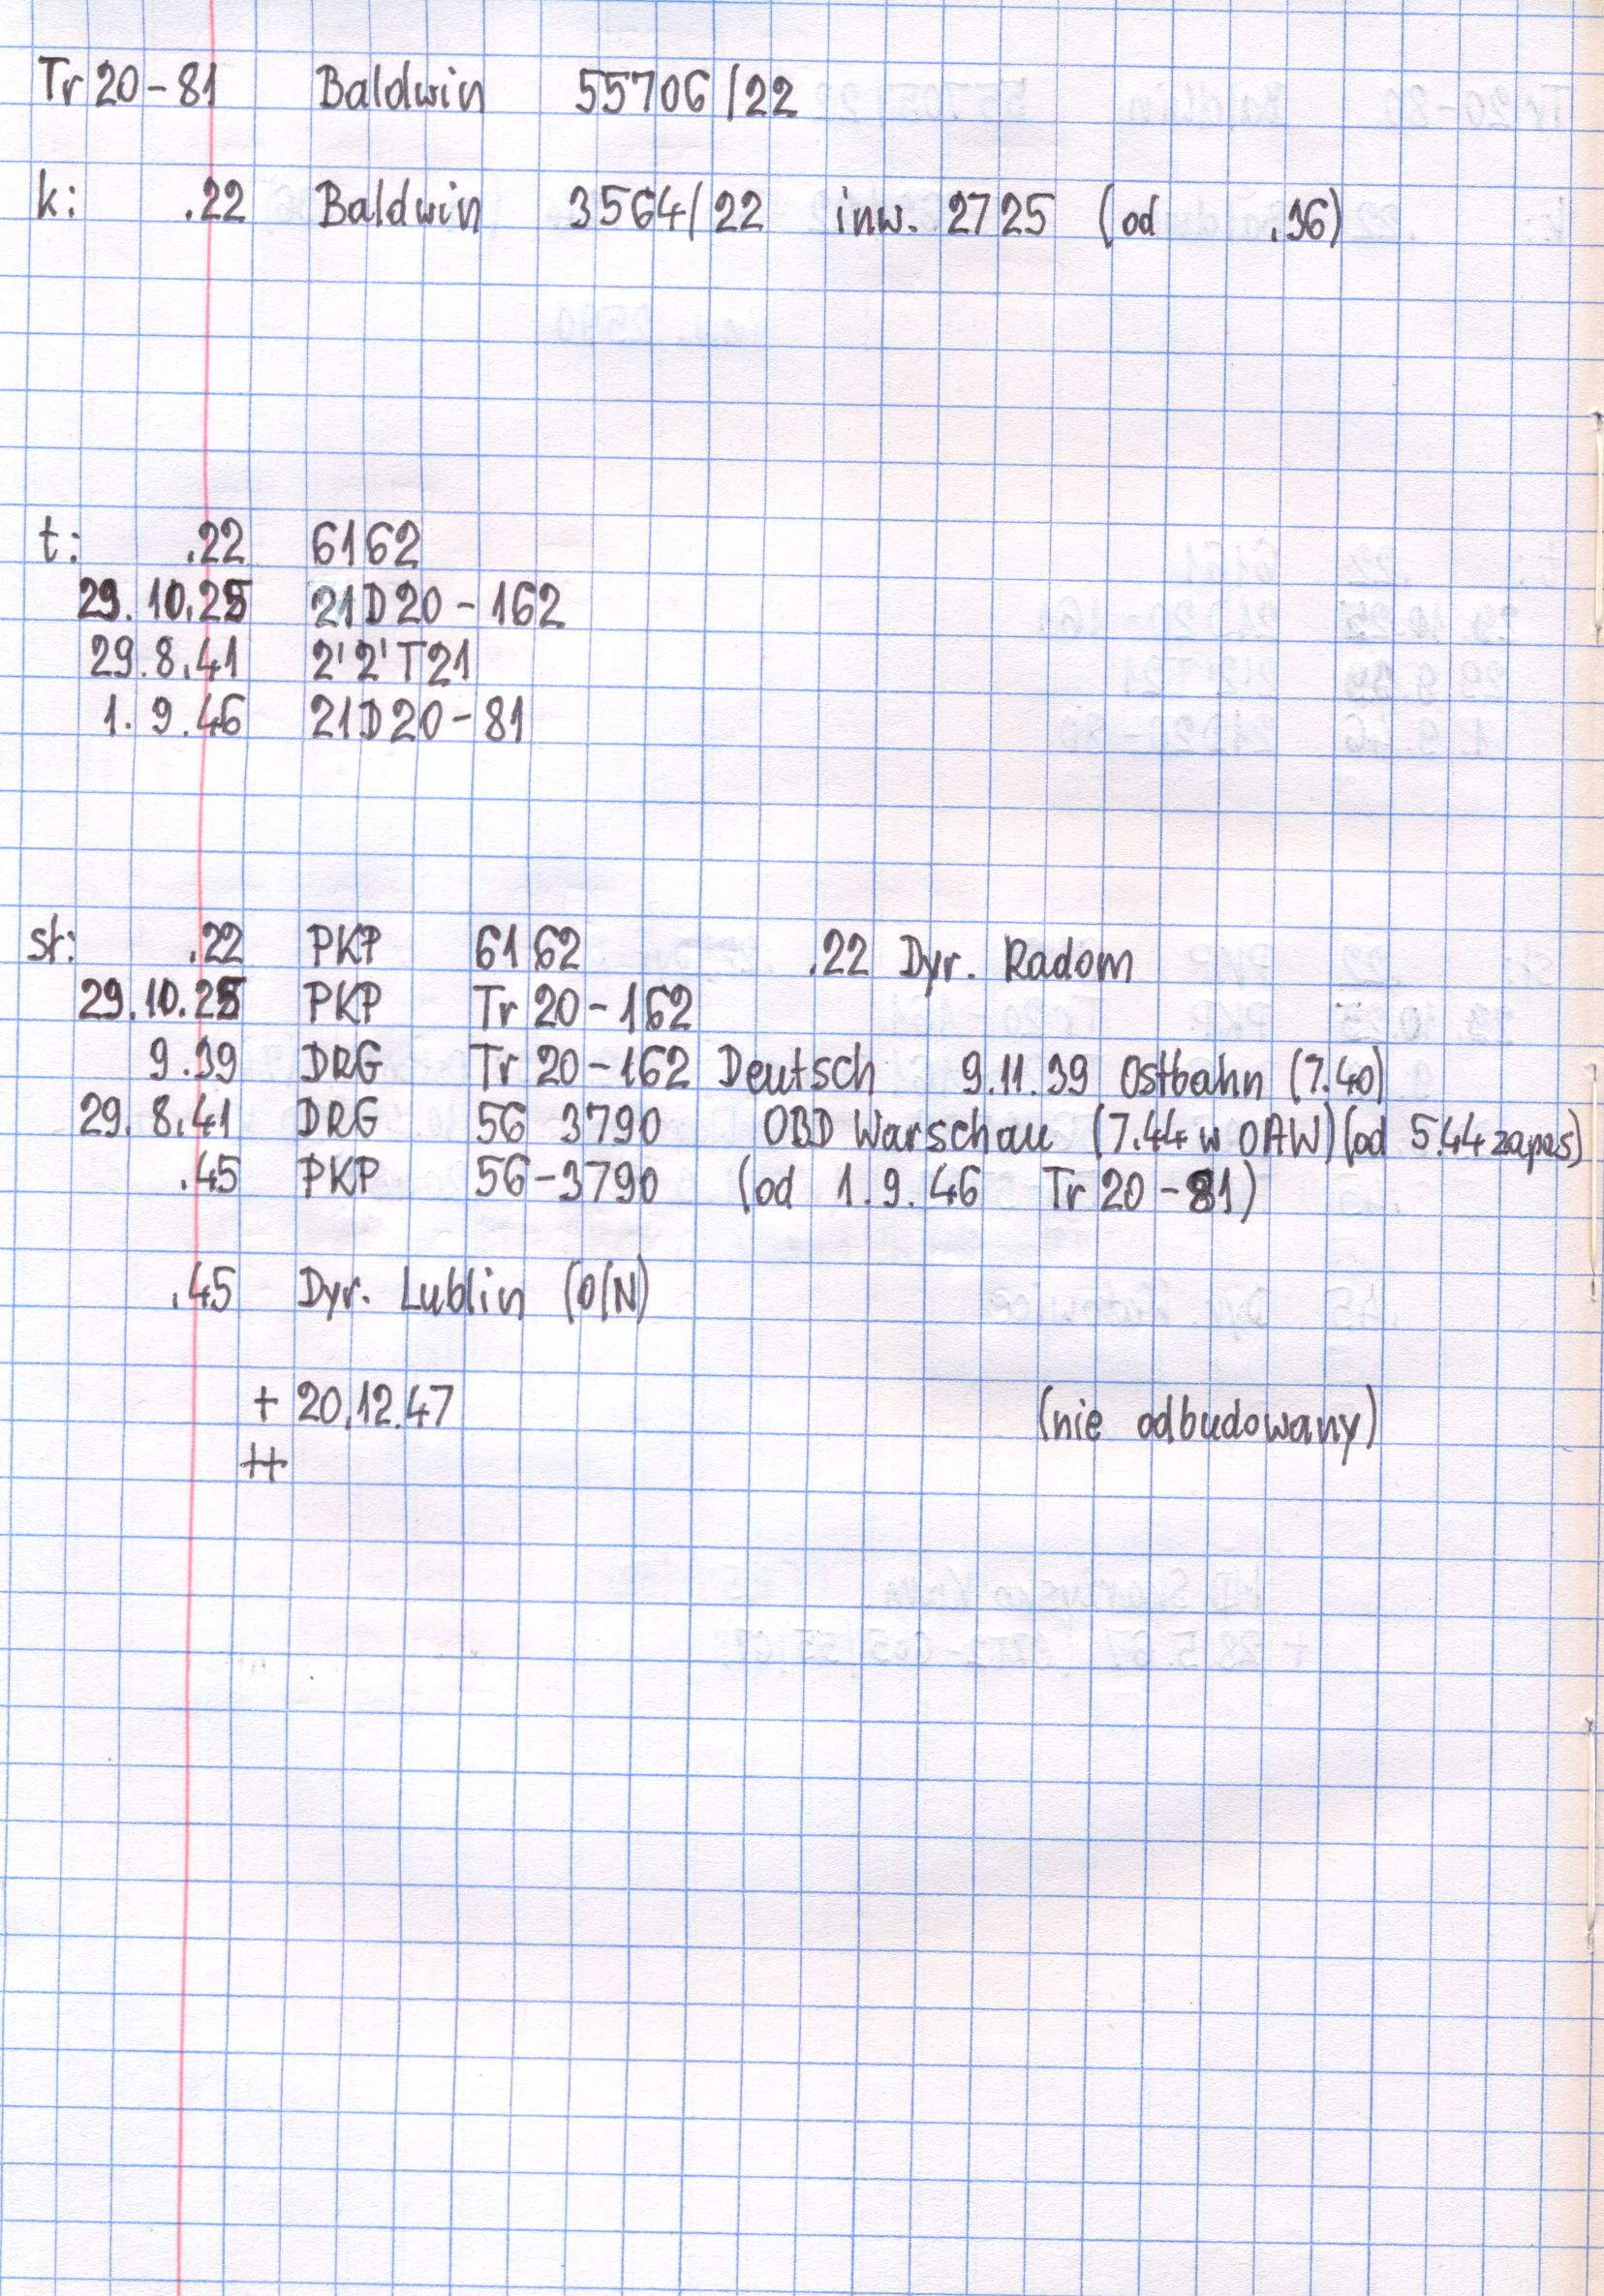 Tr 20-81 Baldwin 55706/22
k: .22 Baldwin 3564/22 inw. 2725 (od .36)
t: .22 6162
29.10.25 21D20-162
29.8.41 2'2'T21
1.9.46 21D20-81
st: .22 PKP 6162 .22 Dyr. Radom
29.10.25 PKP Tr 20-162
9.39 DRG Tr 20-162 Deutsch 9.11.39 Ostbahn (7.40)
29.8.41 DRG 56 3790 OBD Warschau (7.44 w OAW) (od 5.44 zapas)
.45 PKP 56-3790 (od 1.9.46 Tr 20-81)
.45 Dyr. Lublin (O/N)
+ 20.12.47 (nie odbudowany)
++